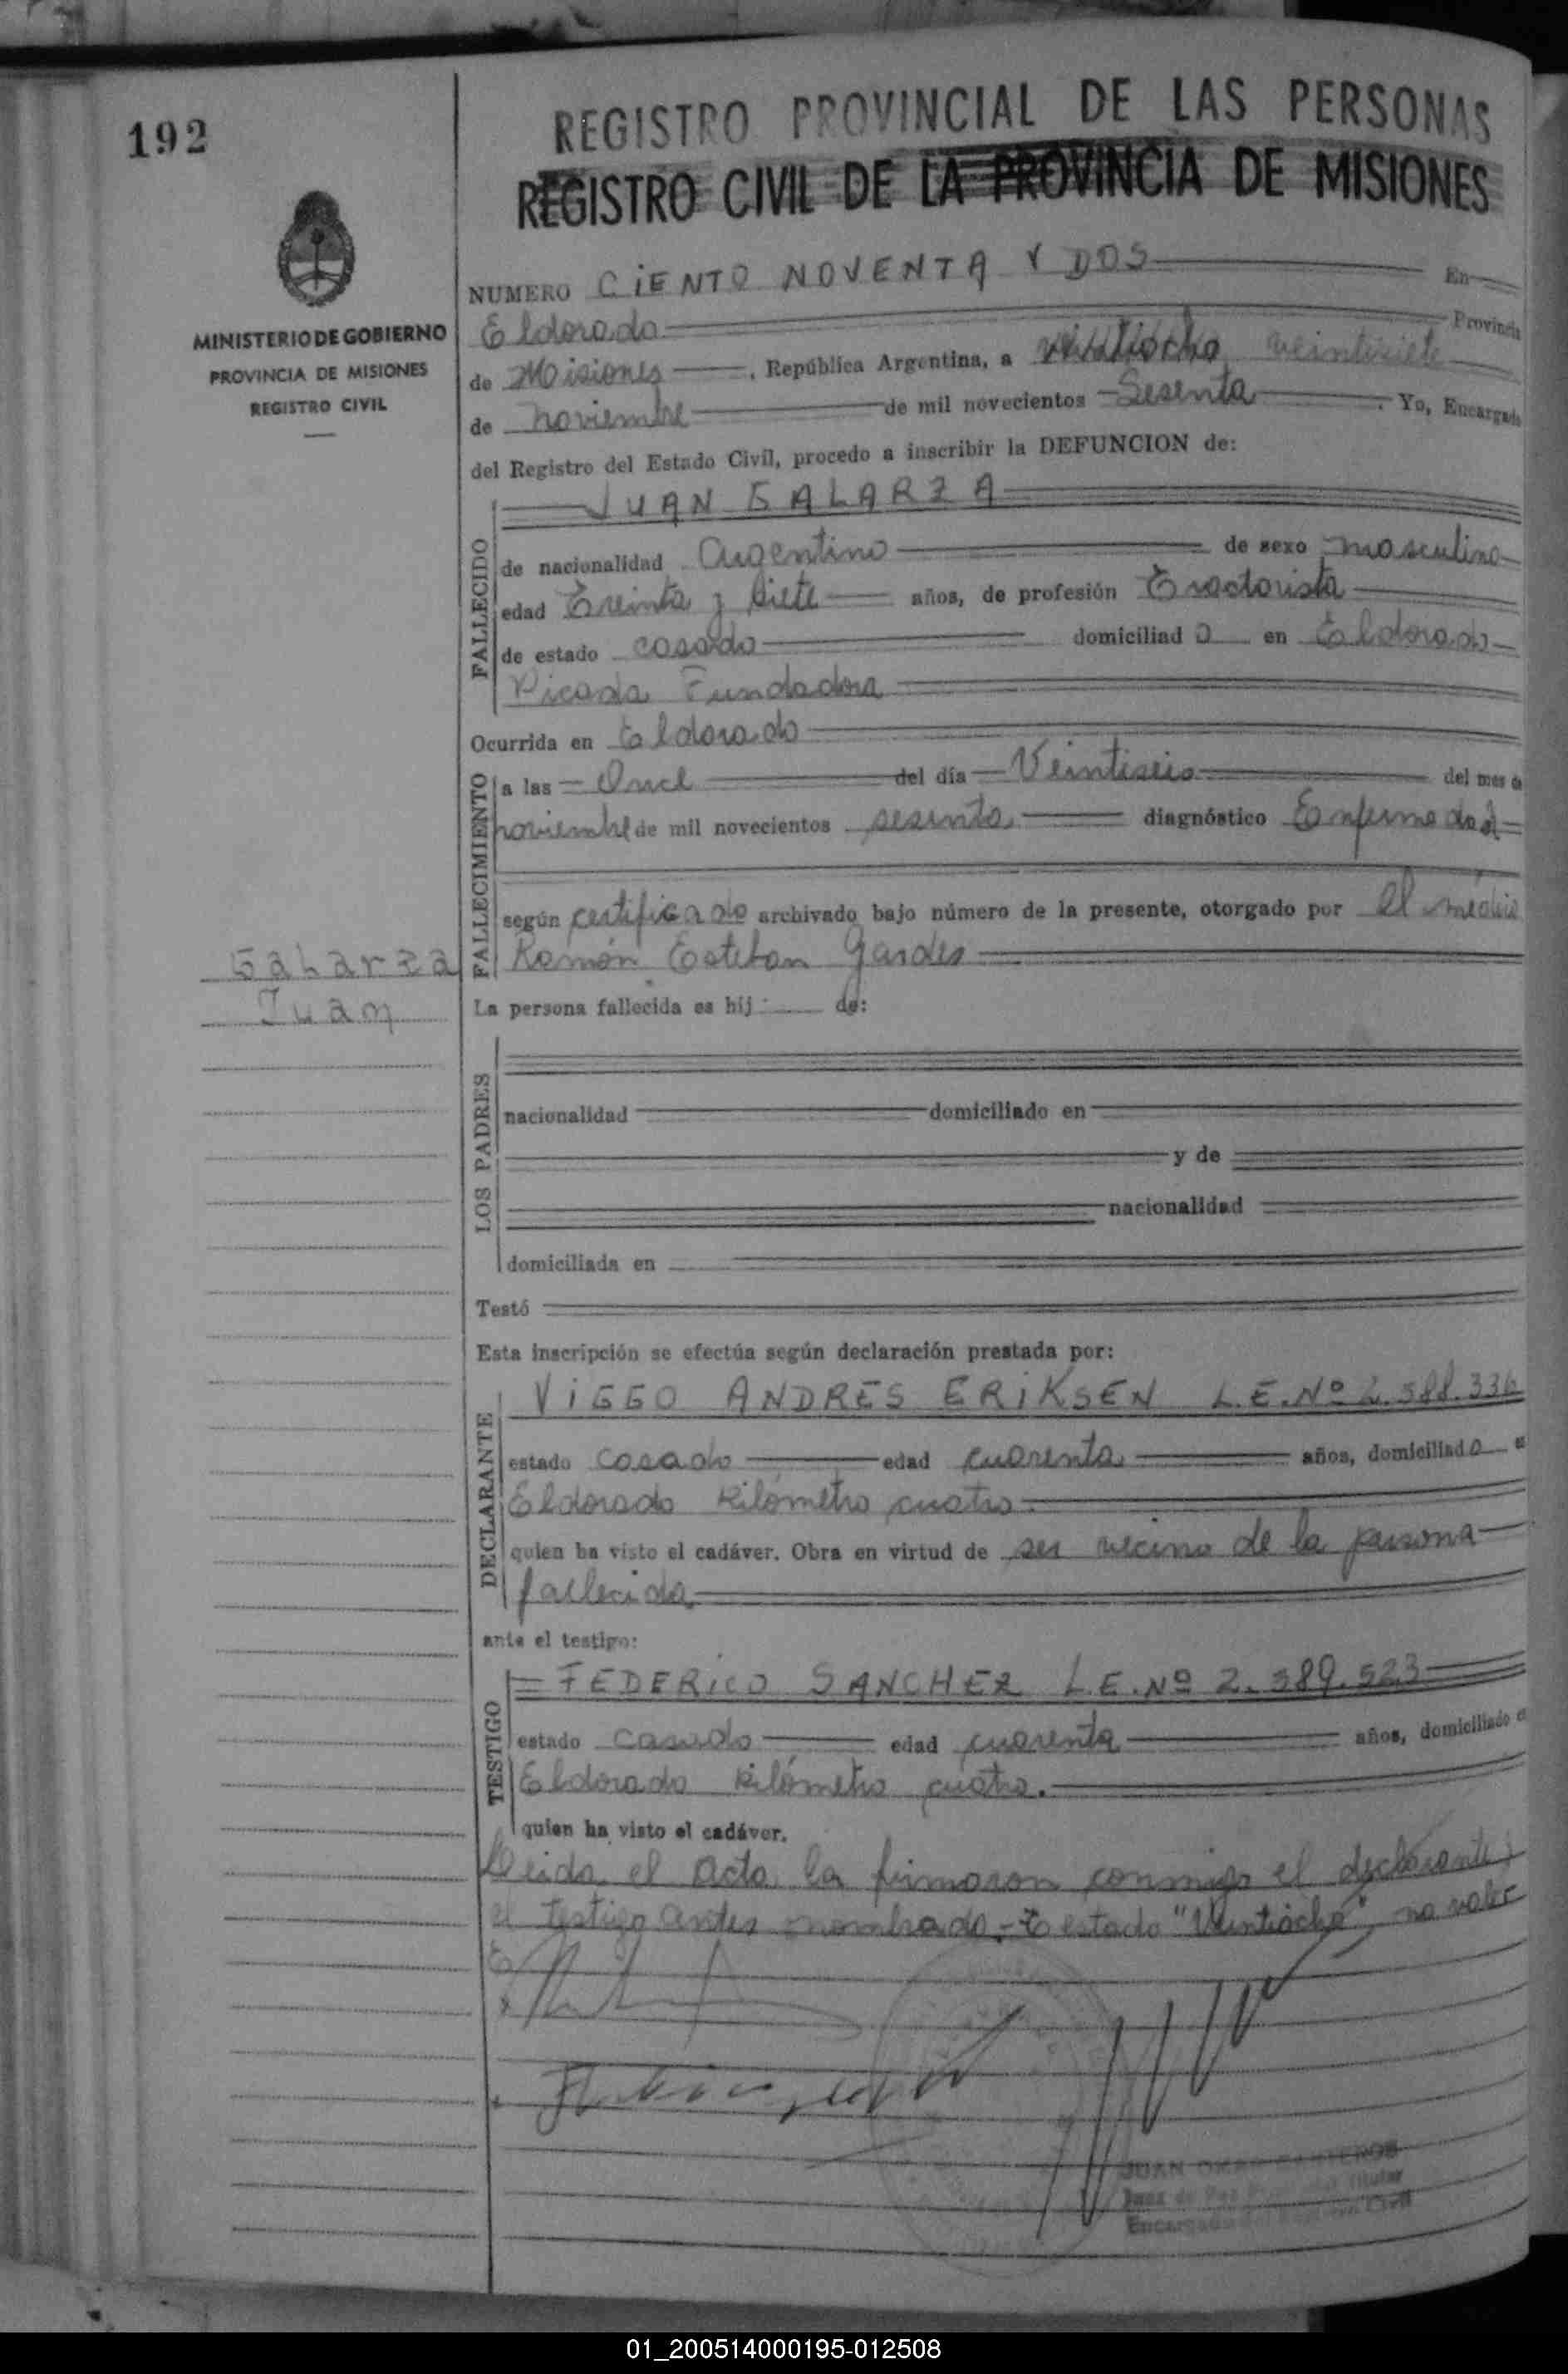 192
REGISTRO PROVINCIAL DE LAS PERSONAS
REGISTRO CIVIL DE LA PROVINCIA DE MISIONES
MINISTERIO DE GOBIERNO
PROVINCIA DE MISIONES
REGISTRO CIVIL
NUMERO CIENTO NOVENTA Y DOS En
Eldorado Provincia
de Misiones, República Argentina, a veintiocho veintisiete
de noviembre de mil novecientos Sesenta. Yo, Encargado
del Registro del Estado Civil, procedo a inscribir la DEFUNCION de:
FALLECIDO
JUAN GALARZA
de nacionalidad Argentino de sexo masculino
edad Treinta y siete años, de profesión Tractorista
de estado casado domiciliado en Eldorado
Picada Fundadora
Ocurrida en Eldorado
FALLECIMIENTO
a las Once del día Veintiseis del mes de
noviembre de mil novecientos sesenta diagnóstico Enfermedad
según certificado archivado bajo número de la presente, otorgado por el médico
Ramón Esteban Gardes
Galarza
Juan
La persona fallecida es hij de:
LOS PADRES
nacionalidad domiciliado en
y de
nacionalidad
domiciliada en
Testó
Esta inscripción se efectúa según declaración prestada por:
DECLARANTE
VIGGO ANDRES ERIKSEN L.E.Nº 2.588.336
estado casado edad cuarenta años, domiciliado e
Eldorado kilómetro cuatro.
quien ha visto el cadáver. Obra en virtud de ser vecino de la persona
fallecida
ante el testigo:
TESTIGO
FEDERICO SANCHEZ L.E.Nº 2.389.523
estado casado edad cuarenta años, domiciliado e
Eldorado kilómetro cuatro.
quien ha visto el cadáver.
Leida el acta la firmaron conmigo el declarante y
el testigo antes nombrado.- Testado "Veintiocho", no vale
JUAN OMAR
Juez de Paz Titular
Encargado del Registro Civil
01_200514000195-012508